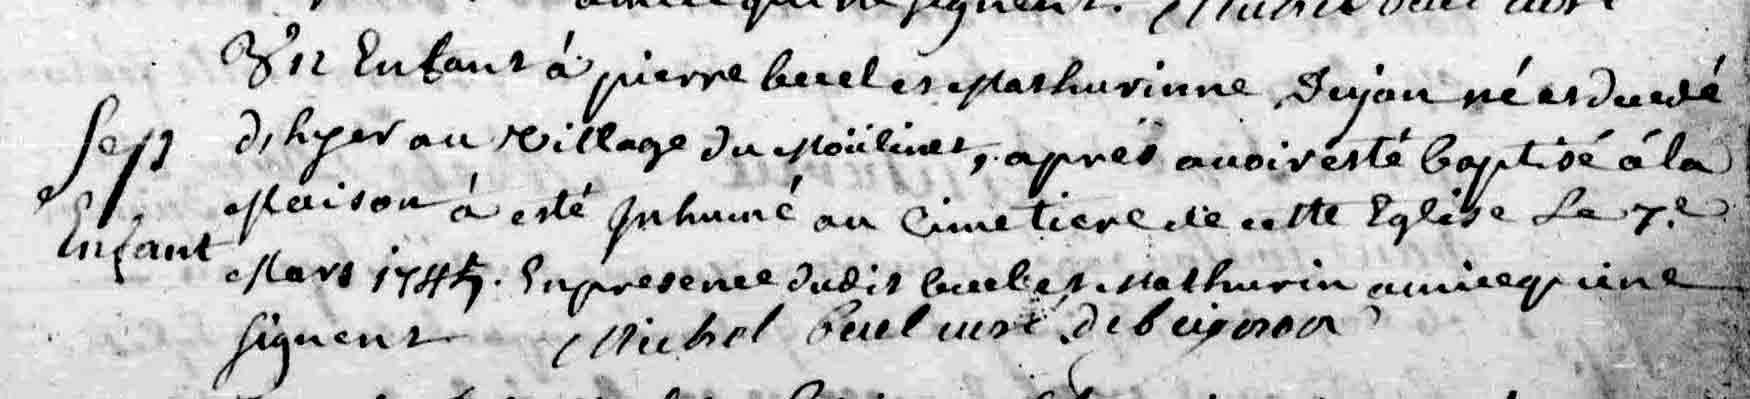 amice qui ne signent. Michel buel curé
Un Enfant à pierre buel et Mathurinne Dujon né et decedé
Sep
d'hyer au village du Moulinet, apres avoir esté baptisé à la
Maison à esté Inhumé au Cimetiere de cette Eglise Le 7.e
Enfant
Mars 1745. En presence dudit buel et Mathurin amice qui ne
signent Michel buel curé de